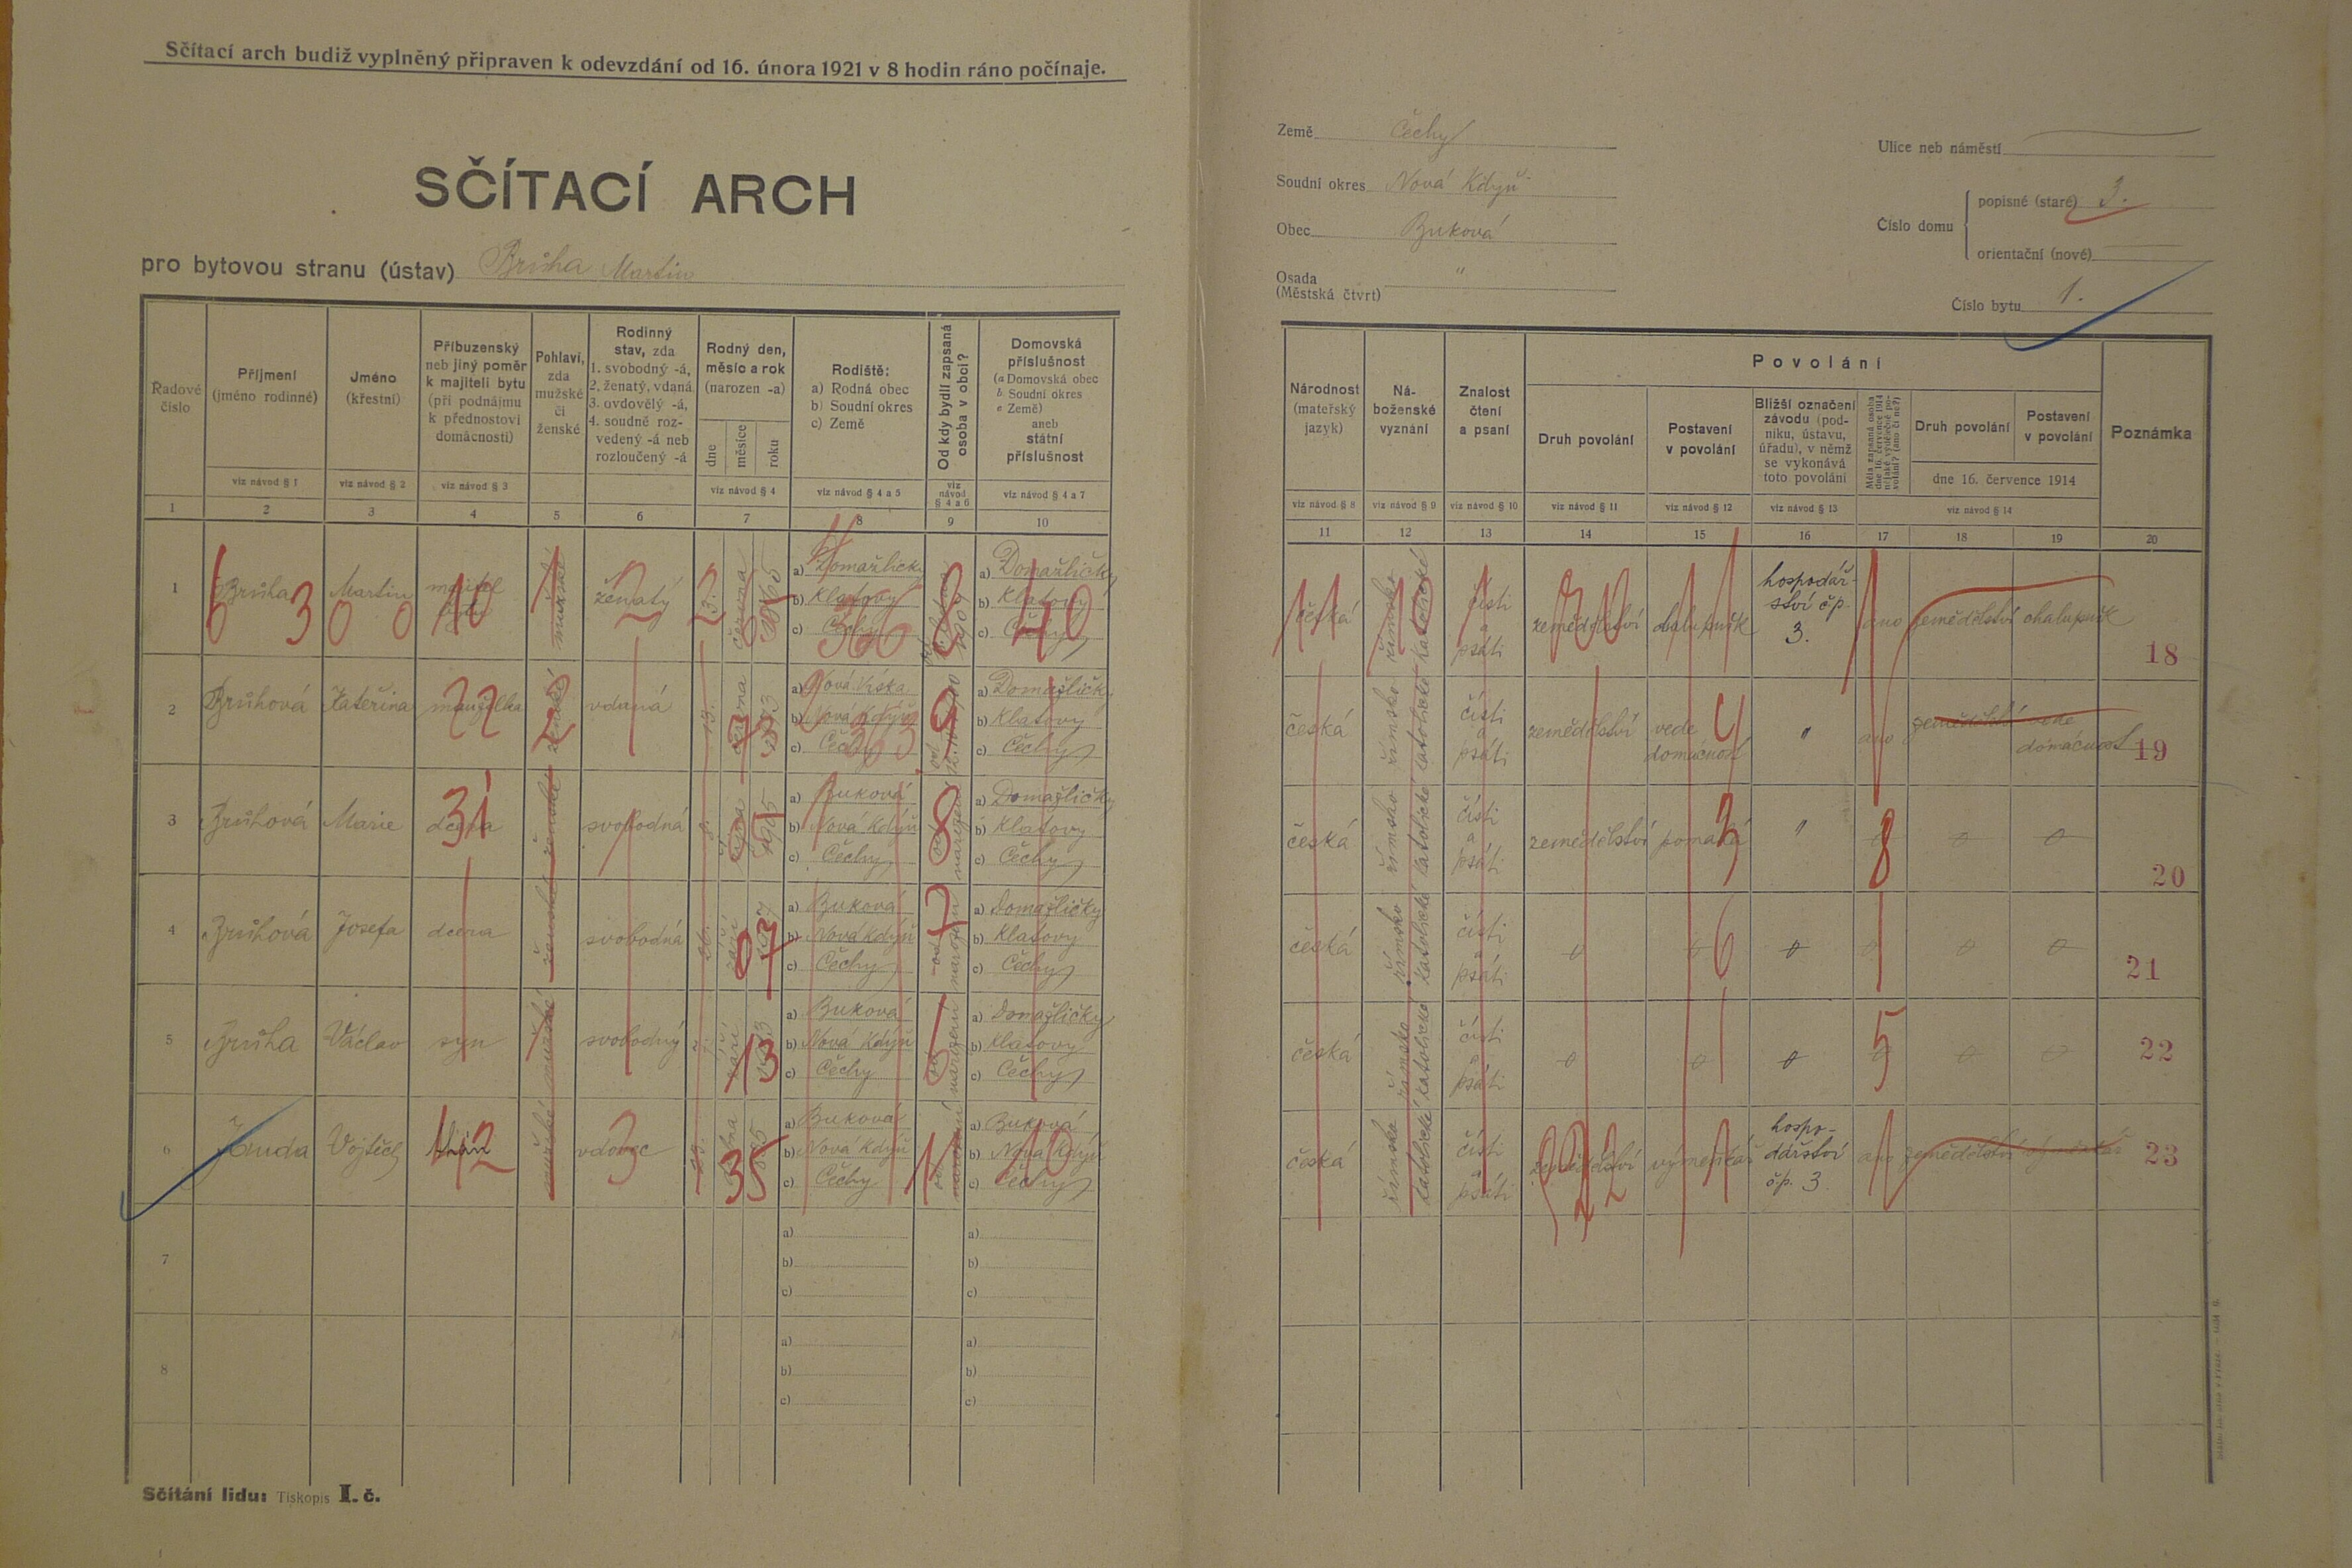 Sčítací arch budiž vyplněný připraven k odevzdání od 16. února 1921 v 8 hodin ráno počínaje.
SČÍTACÍ ARCH
pro bytovou stranu (ústav) Brůha Martin
Země Čechy
Soudní okres Nová Kdyň
Obec Buková
Osada "
(Městská čtvrt)
Ulice neb náměstí
Číslo domu
popisné (staré) 3.
orientační (nové)
Číslo bytu 1.
Řadové číslo
Příjmení (jméno rodinné)
Jméno (křestní)
Příbuzenský neb jiný poměr k majiteli bytu (při podnájmu k přednostovi domácnosti)
Pohlaví, zda mužské či ženské
Rodinný stav, zda 1. svobodný -á, 2. ženatý, vdaná 3. ovdovělý -á, 4. soudně rozvedený -á neb rozloučený -á
Rodný den, měsíc a rok (narozen -a)
dne
měsíce
roku
Rodiště: a) Rodná obec b) Soudní okres c) Země
Od kdy bydlí zapsaná osoba v obci?
Domovská příslušnost (a Domovská obec b Soudní okres c Země) aneb státní příslušnost
viz návod § 1
viz návod § 2
viz návod § 3
viz návod § 4
viz návod § 4 a 5
viz návod § 4 a 6
viz návod § 4 a 7
1 2 3 4 5 6 7 8 9 10
Národnost (mateřský jazyk)
Náboženské vyznání
Znalost čtení a psaní
Povolání
Druh povolání
Postavení v povolání
Bližší označení závodu (podniku, ústavu, úřadu), v němž se vykonává toto povolání
Měla zapsaná osoba dne 16. července 1914 nějaké výdělečné povolání? (ano či ne?)
Druh povolání
Postavení v povolání
dne 16. července 1914
Poznámka
viz návod § 8
viz návod § 9
viz návod § 10
viz návod § 11
viz návod § 12
viz návod § 13
viz návod § 14
11 12 13 14 15 16 17 18 19 20
1 Brůha Martin majitel bytu mužské ženatý června
a) Domažličky
b) Klatovy
c) Čechy
a) Domažličky
b) Klatovy
c) Čechy
česká římsko katolické čísti a psáti zemědělství chalupník hospodářství č.p. 3. ano zemědělství chalupník 18
2 Brůhová Kateřina manželka ženské vdaná 1873
a) Nová Víska
b) Nová Kdyň
c) Čechy
a) Domažličky
b) Klatovy
c) Čechy
česká římsko katolické čísti a psáti zemědělství vede domácnost " ano zemědělství vede domácnost 19
3 Brůhová Marie dcera ženské svobodná 1905
a) Buková
b) Nová Kdyň
c) Čechy
od narození
a) Domažličky
b) Klatovy
c) Čechy
česká římsko katolické čísti a psáti zemědělství pomáhá " 20
4 Brůhová Josefa dcera ženské svobodná září
a) Buková
b) Nová Kdyň
c) Čechy
od narození
a) Domažličky
b) Klatovy
c) Čechy
česká římsko katolické čísti a psáti 21
5 Brůha Václav syn mužské svobodný září
a) Buková
b) Nová Kdyň
c) Čechy
od narození
a) Domažličky
b) Klatovy
c) Čechy
česká římsko katolické čísti a psáti 22
6 Duda Vojtěch mužské vdovec
a) Buková
b) Nová Kdyň
c) Čechy
od narození
a) Buková
b) Nová Kdyň
c) Čechy
česká římsko katolické čísti a psáti zemědělství výměnkář hospodářství č.p. 3 ano zemědělství výměnkář 23
7
a)
b)
c)
a)
b)
c)
8
a)
b)
c)
a)
b)
c)
Sčítání lidu: Tiskopis I. č.